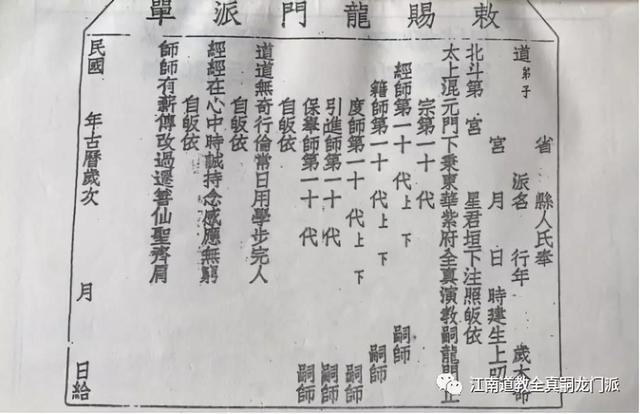 敕賜龍門派單
省 縣人氏奉
道 弟子 派名 行年 歲本命
宮 月 日 時建生上叩
北斗第 宮 星君垣下注照皈依
太上混元門下秉東華紫府全真演教嗣龍門正
宗第一十 代
經師第一十 代上 下 嗣師
籍師第一十 代上 下 嗣師
度師第一十 代上 下 嗣師
引進師第一十 代 嗣師
保舉師第一十 代 嗣師
自皈依
道道無奇行倫常日用學步完人
自皈依
經經在心中時誠持念感應無窮
自皈依
師師有薪傳改過遷善仙聖齊肩
民國 年古曆歲次 月 日給
江南道教全真嗣龙门派